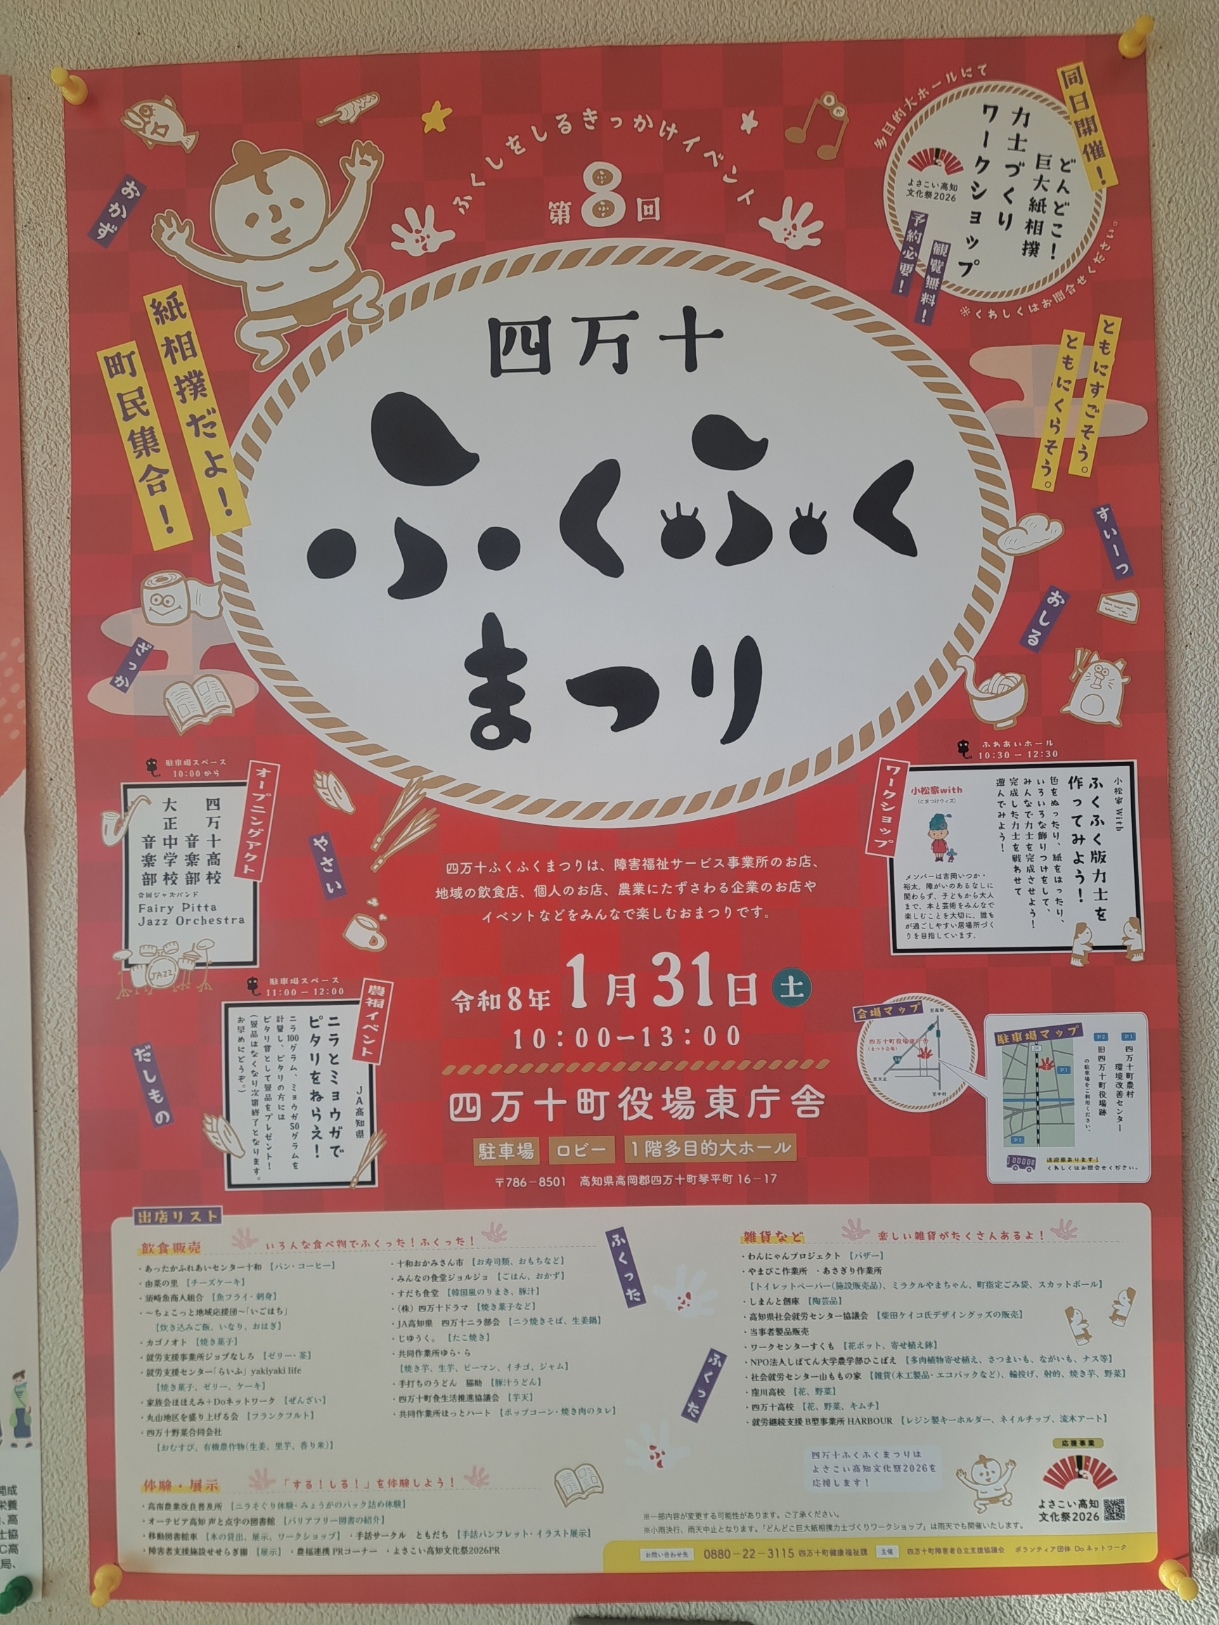 ふくしをしるきっかけイベント
第8回
四万十
ふくふく
まつり
同日開催！
多目的大ホールにて
どんどこ！
巨大紙相撲
力士づくり
ワークショップ
よさこい高知
文化祭2026
予約必要！
観覧無料！
※くわしくはお問合せください。
おかず
紙相撲だよ！
町民集合！
ともにすごそう。
ともにくらそう。
すいーつ
おしる
ざっか
やさい
だしもの
駐車場スペース
10:00から
オープニングアクト
四万十高校
音楽部
大正中学校
音楽部
合同ジャズバンド
Fairy Pitta
Jazz Orchestra
JAZZ
ふれあいホール
10:30－12:30
ワークショップ
小松家with
小松家 With
ふくふく版力士を
作ってみよう！
色をぬったり、紙をはったり、
いろいろな飾りつけをして、
みんなで力士を完成させよう！
完成した力士を戦わせて
遊んでみよう！
メンバーは吉岡いつか・
裕太。障がいのあるなしに
関わらず、子どもから大人
まで、本と芸術をみんなで
楽しむことを大切に、誰も
が過ごしやすい居場所づく
りを目指しています。
四万十ふくふくまつりは、障害福祉サービス事業所のお店、
地域の飲食店、個人のお店、農業にたずさわる企業のお店や
イベントなどをみんなで楽しむおまつりです。
令和8年 1月31日 土
10:00－13:00
四万十町役場東庁舎
駐車場 ロビー 1階多目的大ホール
〒786－8501 高知県高岡郡四万十町琴平町16－17
駐車場スペース
11:00－12:00
農福イベント
JA高知県
ニラとミョウガで
ピタリをねらえ！
ニラ100グラム、ミョウガ50グラムを
計量し、ピタリの方には
ピタリ賞として景品をプレゼント！
（景品はなくなり次第終了となります。
お早めにどうぞ。）
会場マップ
四万十町役場東庁舎
駐車場マップ
P1
P2
P1 四万十町農村
環境改善センター
P2 旧四万十町役場跡
の駐車場をご利用ください。
送迎車あります！
くわしくはお問合せください。
出店リスト
飲食販売 いろんな食べ物でふくった！ふくった！
・あったかふれあいセンター十和 【パン・コーヒー】
・由菜の里 【チーズケーキ】
・須崎魚商人組合 【魚フライ・刺身】
・～ちょこっと地域応援団～「いごはち」
【炊き込みご飯、いなり、おはぎ】
・カゴノオト 【焼き菓子】
・就労支援事業所ジョブなしろ 【ゼリー・茶】
・就労支援センター「らいふ」yakiyaki life
【焼き菓子、ゼリー、ケーキ】
・家族会ほほえみ＋Doネットワーク 【ぜんざい】
・丸山地区を盛り上げる会 【フランクフルト】
・四万十野菜合同会社
【おむすび、有機農作物（生姜、里芋、香り米）】
・十和おかみさん市 【お寿司類、おもちなど】
・みんなの食堂ジョルジョ 【ごはん、おかず】
・すだち食堂 【韓国風のりまき、豚汁】
・（株）四万十ドラマ 【焼き菓子など】
・JA高知県 四万十ニラ部会 【ニラ焼きそば、生姜鍋】
・じゆうく。 【たこ焼き】
・共同作業所ゆら・ら
【焼き芋、生芋、ピーマン、イチゴ、ジャム】
・手打ちのうどん 猫助 【豚汁うどん】
・四万十町食生活推進協議会 【芋天】
・共同作業所ほっとハート 【ポップコーン・焼き肉のタレ】
ふくった
ふくった
雑貨など 楽しい雑貨がたくさんあるよ！
・わんにゃんプロジェクト 【バザー】
・やまびこ作業所 ・あさぎり作業所
【トイレットペーパー（施設販売品）、ミラクルやまちゃん、町指定ごみ袋、スカットボール】
・しまんと創庫 【陶芸品】
・高知県社会就労センター協議会 【柴田ケイコ氏デザイングッズの販売】
・当事者製品販売
・ワークセンターすくも 【花ポット、寄せ植え鉢】
・NPO法人しぼてん大学農学部ひこばえ 【多肉植物寄せ植え、さつまいも、ながいも、ナス等】
・社会就労センター山ももの家 【雑貨（木工製品・エコバックなど）、輪投げ、射的、焼き芋、野菜】
・窪川高校 【花、野菜】
・四万十高校 【花、野菜、キムチ】
・就労継続支援B型事業所 HARBOUR 【レジン製キーホルダー、ネイルチップ、流木アート】
体験・展示 「する！しる！」を体験しよう！
・高南農業改良普及所 【ニラそぐり体験・みょうがのパック詰め体験】
・オーテピア高知 声と点字の図書館 【バリアフリー図書の紹介】
・移動図書館車 【本の貸出、展示、ワークショップ】 ・手話サークル ともだち 【手話パンフレット・イラスト展示】
・障害者支援施設せせらぎ園 【展示】 ・農福連携PRコーナー ・よさこい高知文化祭2026PR
四万十ふくふくまつりは
よさこい高知文化祭2026を
応援します！
応援事業
よさこい高知
文化祭2026
※一部内容が変更する可能性があります。ご了承ください。
※小雨決行、雨天中止となります。「どんどこ巨大紙相撲力士づくりワークショップ」は雨天でも開催いたします。
お問い合わせ先 0880－22－3115 四万十町健康福祉課 主催 四万十町障害者自立支援協議会 ボランティア団体 Doネットワーク